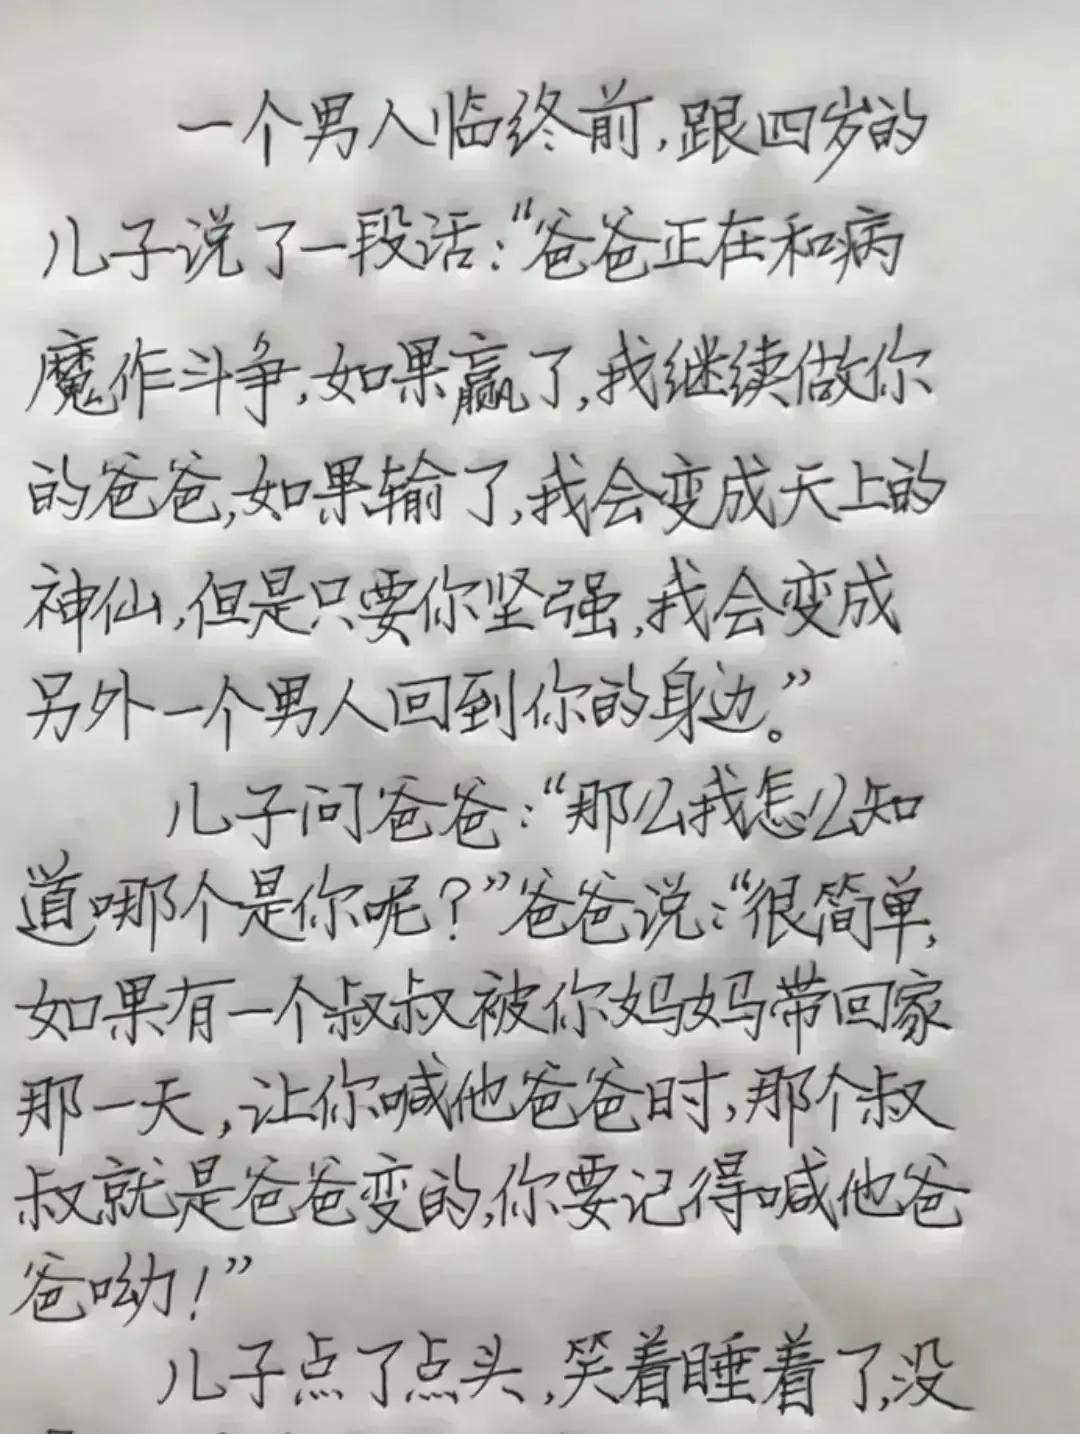 一个男人临终前,跟四岁的
儿子说了一段话:“爸爸正在和病
魔作斗争,如果赢了,我继续做你
的爸爸,如果输了,我会变成天上的
神仙,但是只要你坚强,我会变成
另外一个男人回到你的身边。”
儿子问爸爸:“那么我怎么知
道哪个是你呢?”爸爸说:“很简单,
如果有一个叔叔被你妈妈带回家
那一天,让你喊他爸爸时,那个叔
叔就是爸爸变的,你要记得喊他爸
爸呦!”
儿子点了点头,笑着睡着了,没